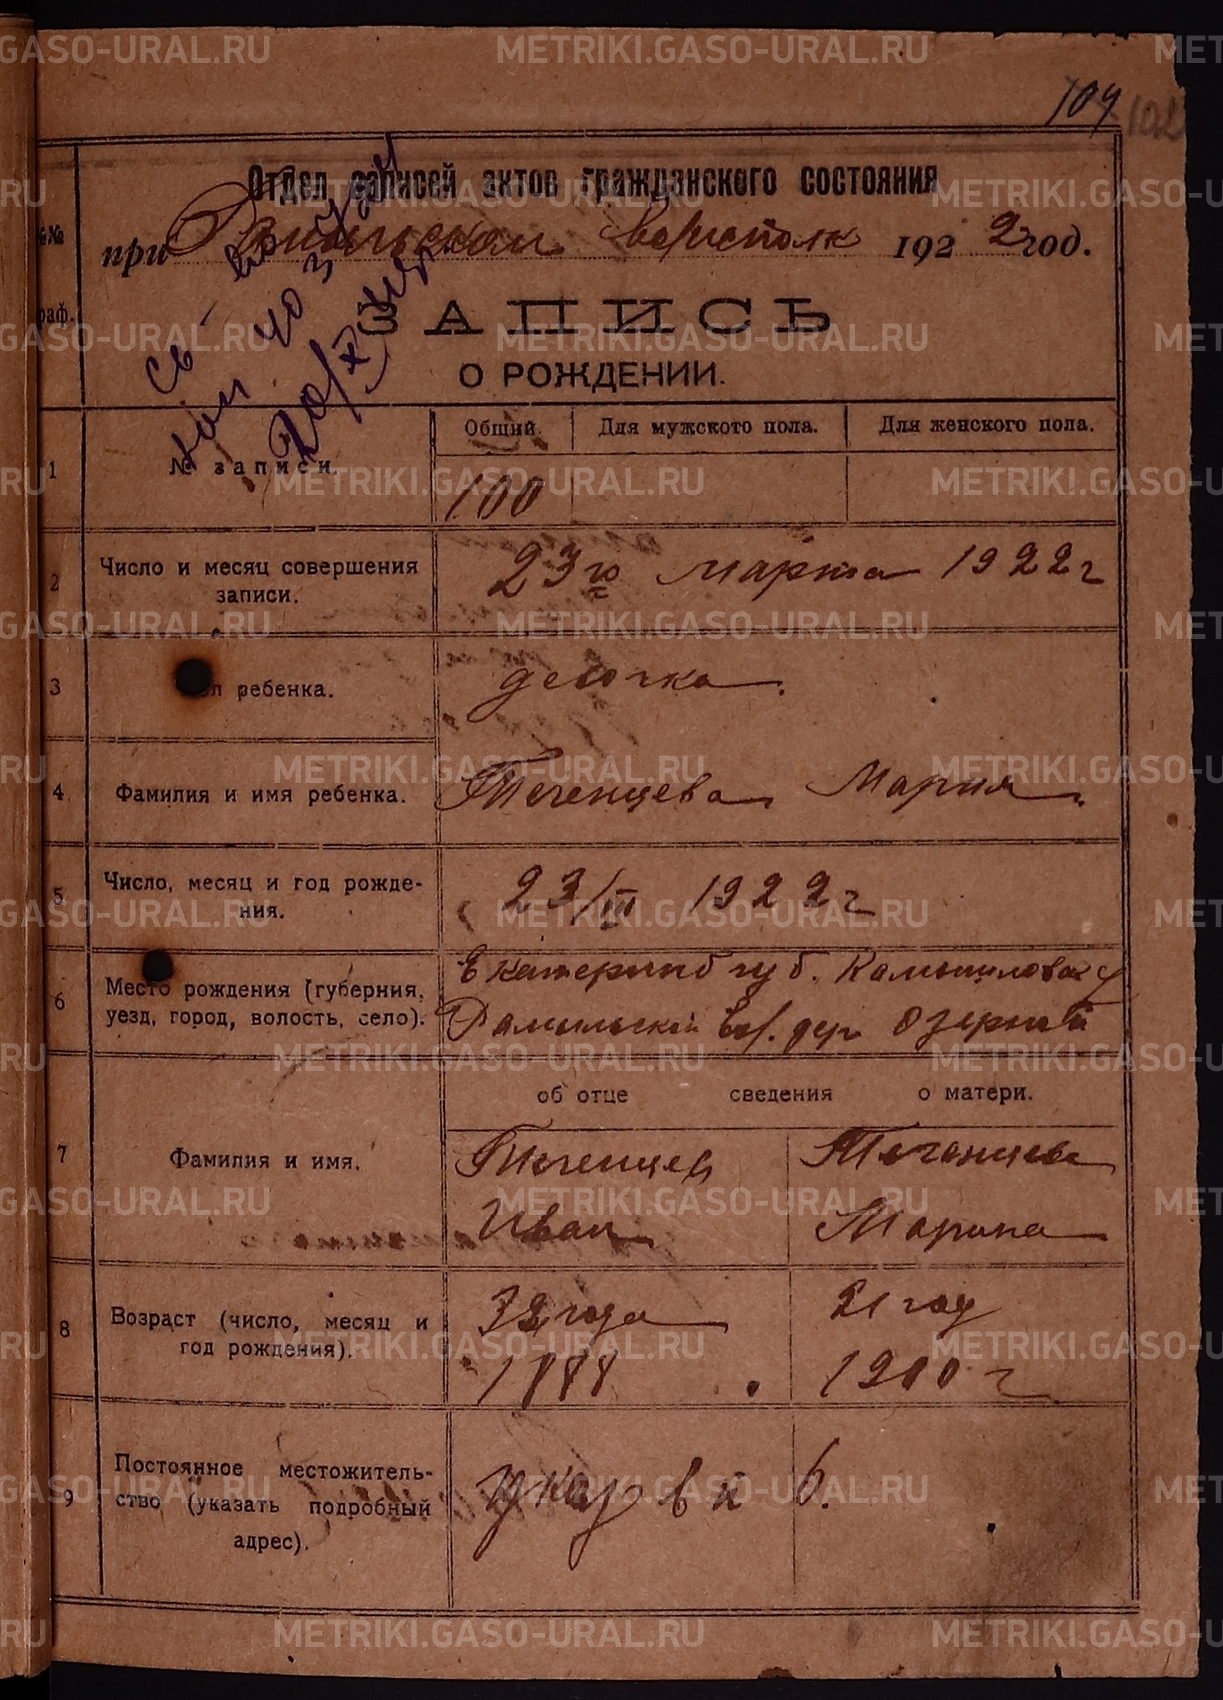 104 102
Отдел записей актов гражданского состояния
№№
при волисполк 1922 год.
раф.
ЗАПИСЬ
О РОЖДЕНИИ.
Общий. Для мужского пола. Для женского пола.
1 № записи. 100
2 Число и месяц совершения
записи.
23го марта 1922 г
3 ребенка. девочка.
4 Фамилия и имя ребенка. Теченцева Мария
5 Число, месяц и год рожде-
ния.
23/III 1922 г
6 Место рождения (губерния,
уезд, город, волость, село).
Екатеринб губ. Камышловск у
вол. дер Озерной
об отце сведения о матери.
7 Фамилия и имя.
Теченцев Теченцева
Иван Марина
8 Возраст (число, месяц и
год рождения).
32 года 21 год
1888 1900 г
9 Постоянное местожитель-
ство (указать подробный
адрес).
указ в п 6.
METRIKI.GASO-URAL.RU